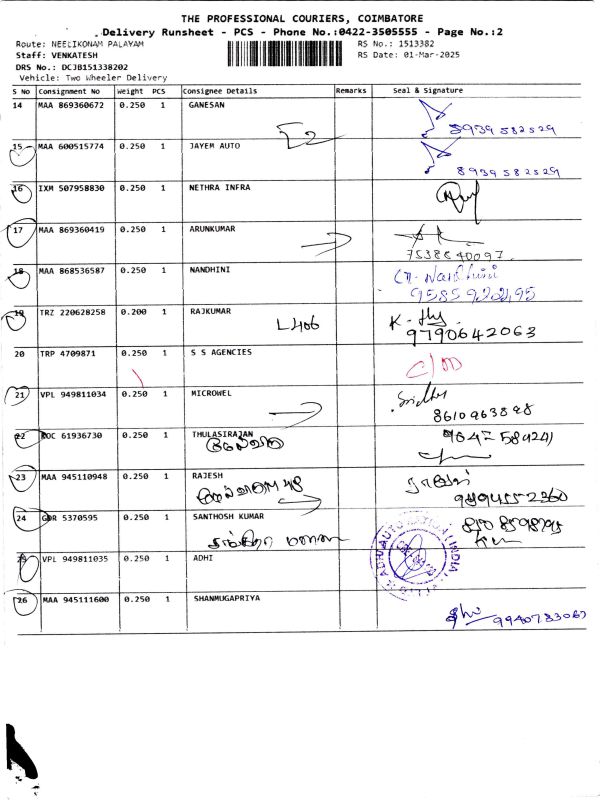 THE PROFESSIONAL COURIERS, COIMBATORE
Delivery Runsheet - PCS - Phone No.:0422-3505555 - Page No.:2
Route: NEELIKONAM PALAYAM RS No.: 1513382
Staff: VENKATESH RS Date: 01-Mar-2025
DRS No.: DCJB151338202
Vehicle: Two Wheeler Delivery
S No Consignment No Weight PCS Consignee Details Remarks Seal & Signature
14 MAA 869360672 0.250 1 GANESAN
8939 582529
15 MAA 600515774 0.250 1 JAYEM AUTO
8939 582529
16 IXM 507958830 0.250 1 NETHRA INFRA
17 MAA 869360419 0.250 1 ARUNKUMAR
7538640097
18 MAA 868536587 0.250 1 NANDHINI
9585922295
19 TRZ 220628258 0.200 1 RAJKUMAR
L406
9790642063
20 TRP 4709871 0.250 1 S S AGENCIES
21 VPL 949811034 0.250 1 MICROWEL
8610963898
22 KOC 61936730 0.250 1 THULASIRAJAN
23 MAA 945110948 0.250 1 RAJESH
24 GDR 5370595 0.250 1 SANTHOSH KUMAR
25 VPL 949811035 0.250 1 ADHI
26 MAA 945111600 0.250 1 SHANMUGAPRIYA
9940783067